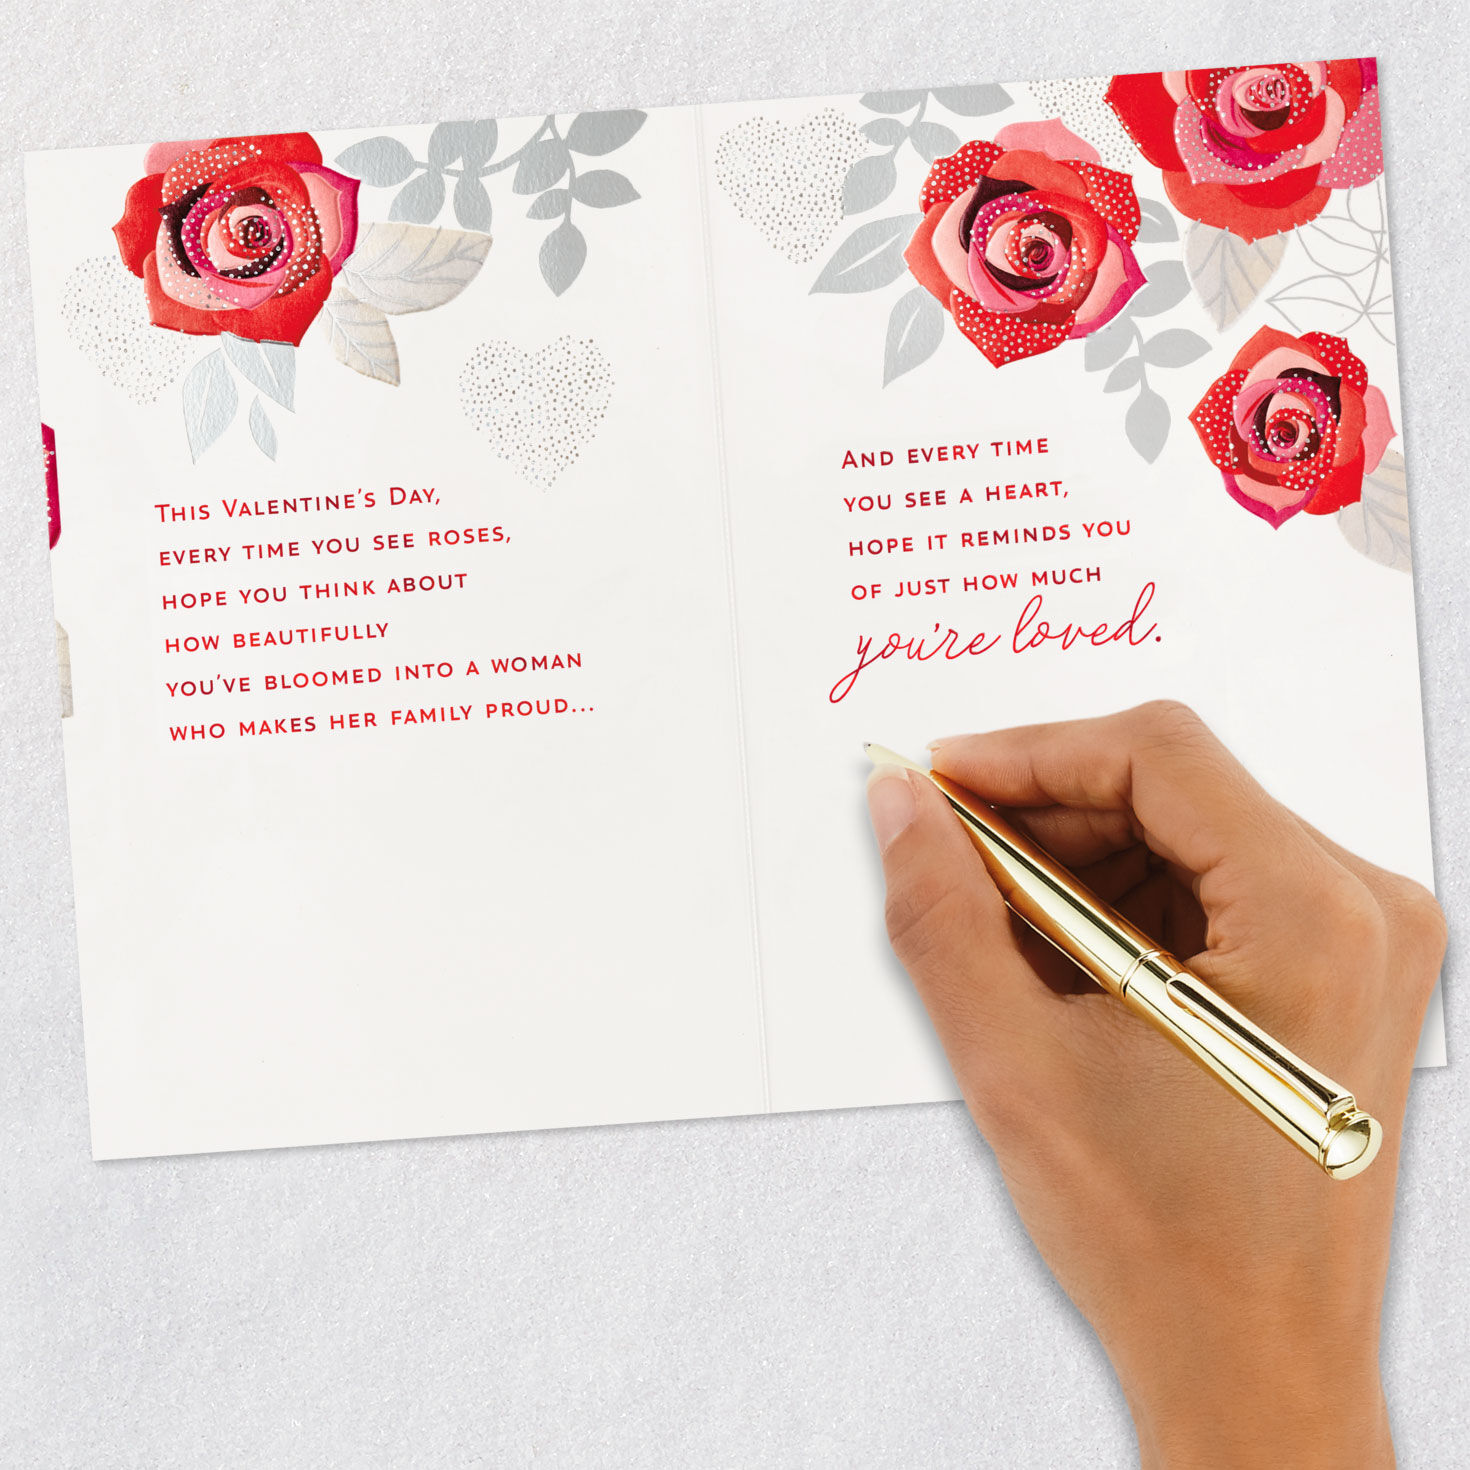 This Valentine's Day,
every time you see roses,
hope you think about
how beautifully
you've bloomed into a woman
who makes her family proud...
And every time
you see a heart,
hope it reminds you
of just how much
you're loved.